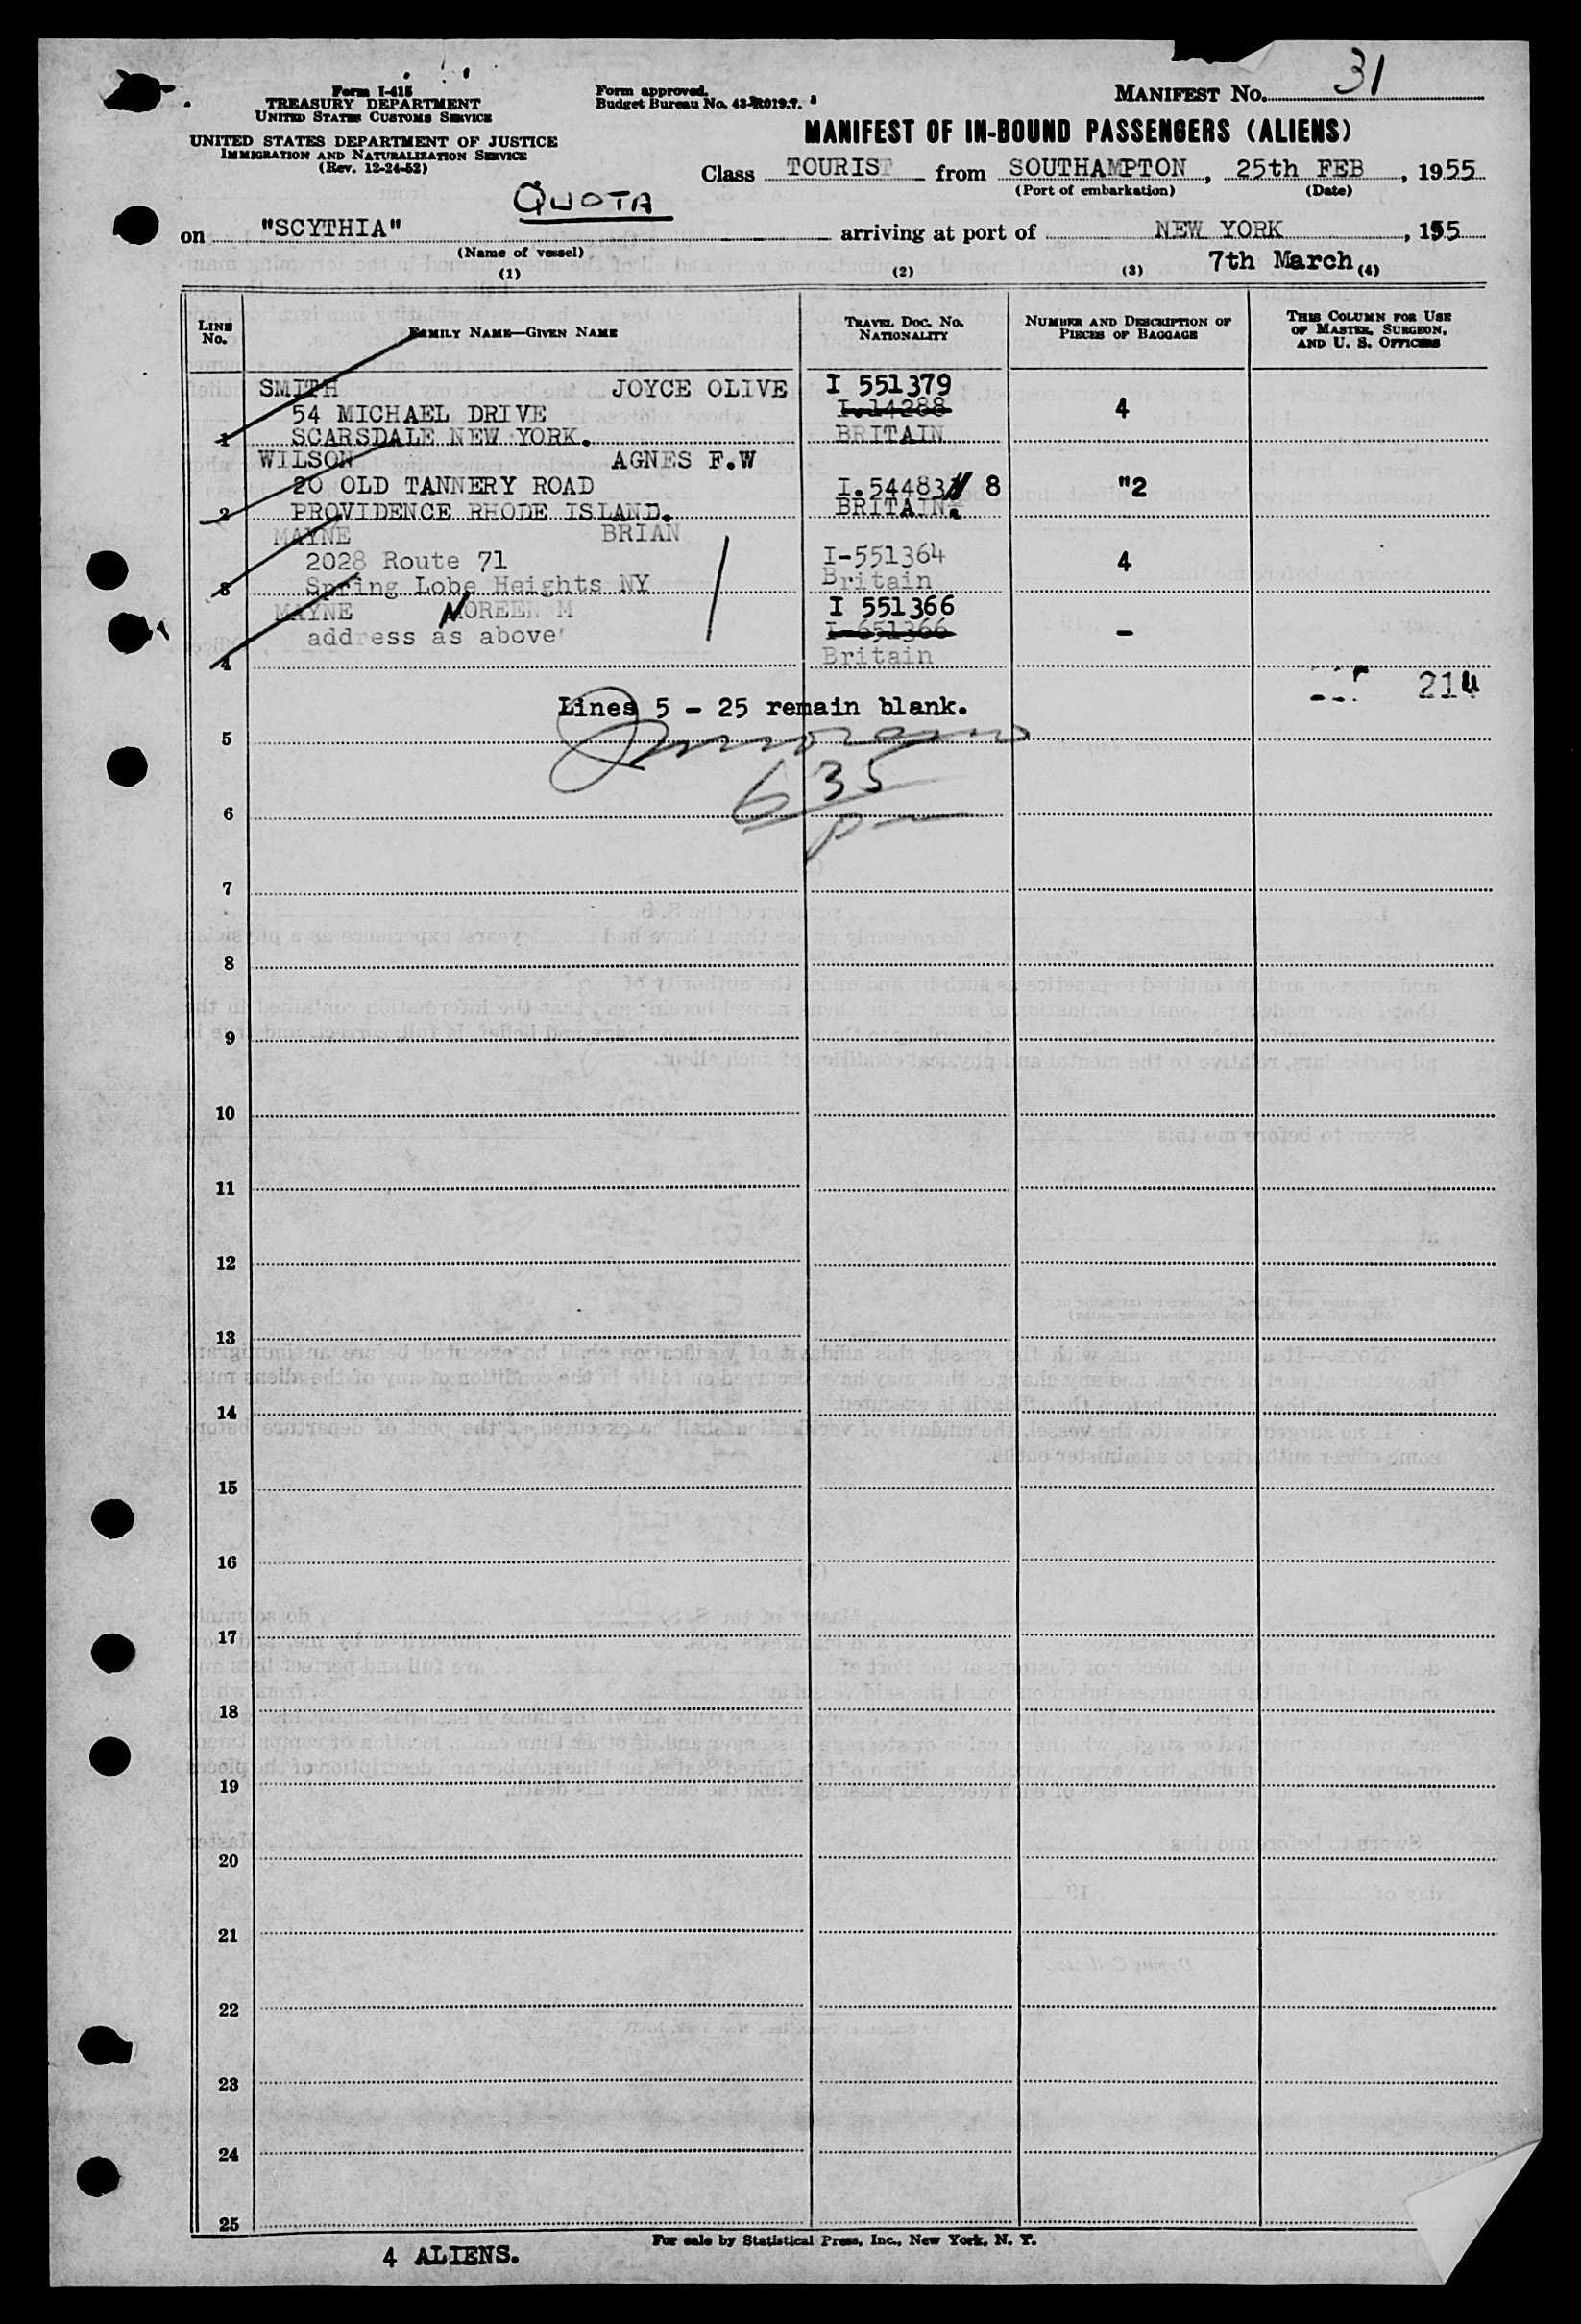 31
Form I-415
TREASURY DEPARTMENT
UNITED STATES CUSTOMS SERVICE
Form approved.
Budget Bureau No. 43-R019.7.
MANIFEST No.
UNITED STATES DEPARTMENT OF JUSTICE
IMMIGRATION AND NATURALIZATION SERVICE
(Rev. 12-24-52)
MANIFEST OF IN-BOUND PASSENGERS (ALIENS)
Class TOURIST from SOUTHAMPTON, 25th FEB, 1955
(Port of embarkation) (Date)
QUOTA
on "SCYTHIA" arriving at port of NEW YORK, 1955
(Name of vessel) 7th March
(1) (2) (3) (4)
LINE No. FAMILY NAME—GIVEN NAME TRAVEL DOC. No. NATIONALITY NUMBER AND DESCRIPTION OF PIECES OF BAGGAGE THIS COLUMN FOR USE OF MASTER, SURGEON, AND U. S. OFFICERS
SMITH JOYCE OLIVE I 551379
54 MICHAEL DRIVE I.14288 4
1 SCARSDALE NEW YORK. BRITAIN
WILSON AGNES F.W
20 OLD TANNERY ROAD I.54483 8 "2
2 PROVIDENCE RHODE ISLAND. BRITAIN.
MAYNE BRIAN
2028 Route 71 I-551364 4
3 Spring Lobe Heights NY Britain
MAYNE NOREEN M I 551366
address as above I-651366 –
4 Britain
214
Lines 5 - 25 remain blank.
5
635
6
7
8
9
10
11
12
13
14
15
16
17
18
19
20
21
22
23
24
25
For sale by Statistical Press, Inc., New York, N. Y.
4 ALIENS.